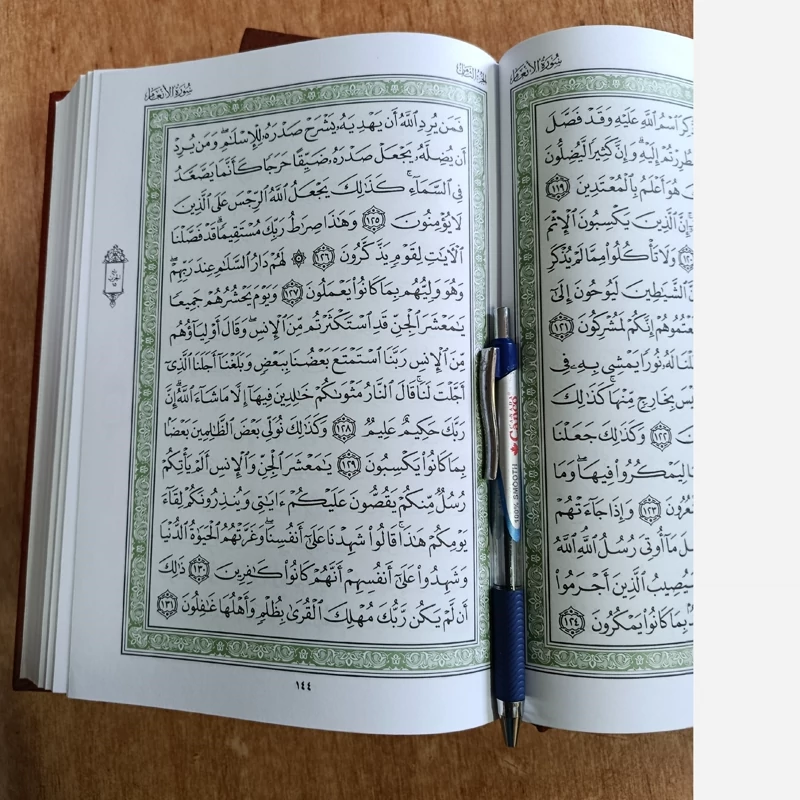 سُورَةُ الأَنْعَام
ٱسْمُ ٱللَّهِ عَلَيْهِ وَقَدْ فَصَّلَ
إِلَيْهِ وَإِنَّ كَثِيرًا لَّيُضِلُّونَ
هُوَ أَعْلَمُ بِٱلْمُعْتَدِينَ ١١٩
إِنَّ ٱلَّذِينَ يَكْسِبُونَ ٱلْإِثْمَ
وَلَا تَأْكُلُوا۟ مِمَّا لَمْ يُذْكَرِ
ٱلشَّيَٰطِينَ لَيُوحُونَ إِلَىٰٓ
إِنَّكُمْ لَمُشْرِكُونَ ١٢١
لَهُۥ نُورًا يَمْشِى بِهِۦ فِى
بِخَارِجٍ مِّنْهَا كَذَٰلِكَ
١٢٢ وَكَذَٰلِكَ جَعَلْنَا
لِيَمْكُرُوا۟ فِيهَا وَمَا
١٢٣ وَإِذَا جَآءَتْهُمْ
مَآ أُوتِىَ رُسُلُ ٱللَّهِ ٱللَّهُ
سَيُصِيبُ ٱلَّذِينَ أَجْرَمُوا۟
بِمَا كَانُوا۟ يَمْكُرُونَ ١٢٤
سُورَةُ الأَنْعَام
فَمَن يُرِدِ ٱللَّهُ أَن يَهْدِيَهُۥ يَشْرَحْ صَدْرَهُۥ لِلْإِسْلَٰمِ وَمَن يُرِدْ
أَن يُضِلَّهُۥ يَجْعَلْ صَدْرَهُۥ ضَيِّقًا حَرَجًا كَأَنَّمَا يَصَّعَّدُ
فِى ٱلسَّمَآءِ كَذَٰلِكَ يَجْعَلُ ٱللَّهُ ٱلرِّجْسَ عَلَى ٱلَّذِينَ
لَا يُؤْمِنُونَ ١٢٥ وَهَٰذَا صِرَٰطُ رَبِّكَ مُسْتَقِيمًا قَدْ فَصَّلْنَا
ٱلْءَايَٰتِ لِقَوْمٍ يَذَّكَّرُونَ ١٢٦ ۞ لَهُمْ دَارُ ٱلسَّلَٰمِ عِندَ رَبِّهِمْ
وَهُوَ وَلِيُّهُم بِمَا كَانُوا۟ يَعْمَلُونَ ١٢٧ وَيَوْمَ يَحْشُرُهُمْ جَمِيعًا
يَٰمَعْشَرَ ٱلْجِنِّ قَدِ ٱسْتَكْثَرْتُم مِّنَ ٱلْإِنسِ وَقَالَ أَوْلِيَآؤُهُم
مِّنَ ٱلْإِنسِ رَبَّنَا ٱسْتَمْتَعَ بَعْضُنَا بِبَعْضٍ وَبَلَغْنَآ أَجَلَنَا ٱلَّذِىٓ
أَجَّلْتَ لَنَا قَالَ ٱلنَّارُ مَثْوَىٰكُمْ خَٰلِدِينَ فِيهَآ إِلَّا مَا شَآءَ ٱللَّهُ إِنَّ
رَبَّكَ حَكِيمٌ عَلِيمٌ ١٢٨ وَكَذَٰلِكَ نُوَلِّى بَعْضَ ٱلظَّٰلِمِينَ بَعْضًۢا
بِمَا كَانُوا۟ يَكْسِبُونَ ١٢٩ يَٰمَعْشَرَ ٱلْجِنِّ وَٱلْإِنسِ أَلَمْ يَأْتِكُمْ
رُسُلٌ مِّنكُمْ يَقُصُّونَ عَلَيْكُمْ ءَايَٰتِى وَيُنذِرُونَكُمْ لِقَآءَ
يَوْمِكُمْ هَٰذَا قَالُوا۟ شَهِدْنَا عَلَىٰٓ أَنفُسِنَا وَغَرَّتْهُمُ ٱلْحَيَوٰةُ ٱلدُّنْيَا
وَشَهِدُوا۟ عَلَىٰٓ أَنفُسِهِمْ أَنَّهُمْ كَانُوا۟ كَٰفِرِينَ ١٣٠ ذَٰلِكَ
أَن لَّمْ يَكُن رَّبُّكَ مُهْلِكَ ٱلْقُرَىٰ بِظُلْمٍ وَأَهْلُهَا غَٰفِلُونَ ١٣١
١٤٤
Canco
100% SMOOTH